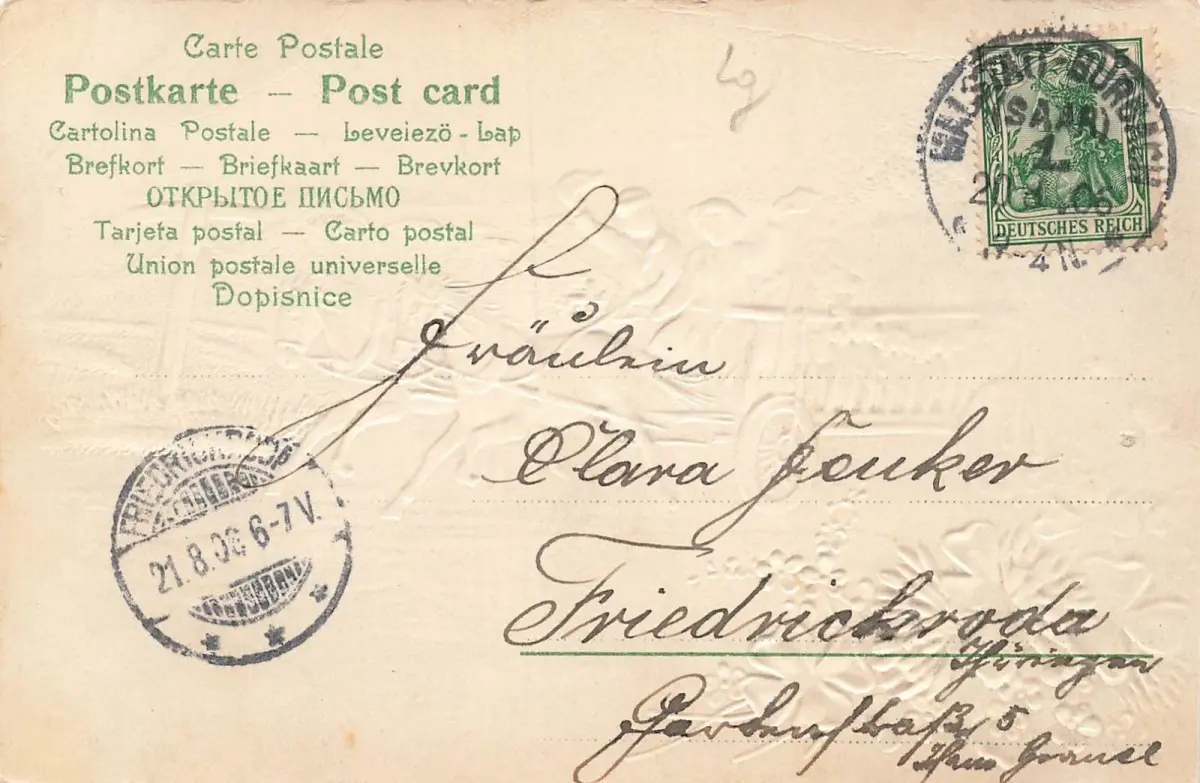 Carte Postale
Postkarte — Post card
Cartolina Postale — Leveiezö-Lap
Brefkort — Briefkaart — Brevkort
ОТКРЫТОЕ ПИСЬМО
Tarjeta postal — Carto postal
Union postale universelle
Dopisnice
Lg
MALSTATT-BURBACH
(SAAR)
1
DEUTSCHES REICH
4 N.
Fräulein
Clara
FRIEDRICHRODA
21.8.06 6-7 V.
Friedrichroda
Thüringen
Gartenstraße 5